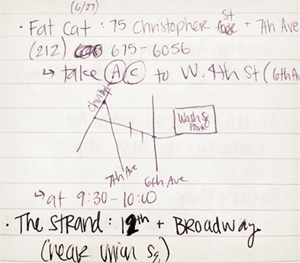 (6/27)
• Fat Cat: 75 Christopher St + 7th Ave
(212) 675-6056
↳ take (A)(C) to W. 4th St (6th Ave
Christopher
Wash Sq Park
7th Ave
6th Ave
↳ at 9:30-10:00
• The Strand: 12th + Broadway
(near Union Sq)